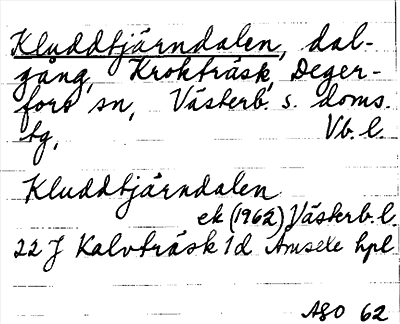 Kluddtjärndalen, dal-
gång, Krokträsk, Deger-
fors sn, Västerb. s. doms.
tg, Vb. l.
Kluddtjärndalen
ek (1962) Västerb. l.
22 J Kalvträsk 1d Amsele hpl
ASO 62